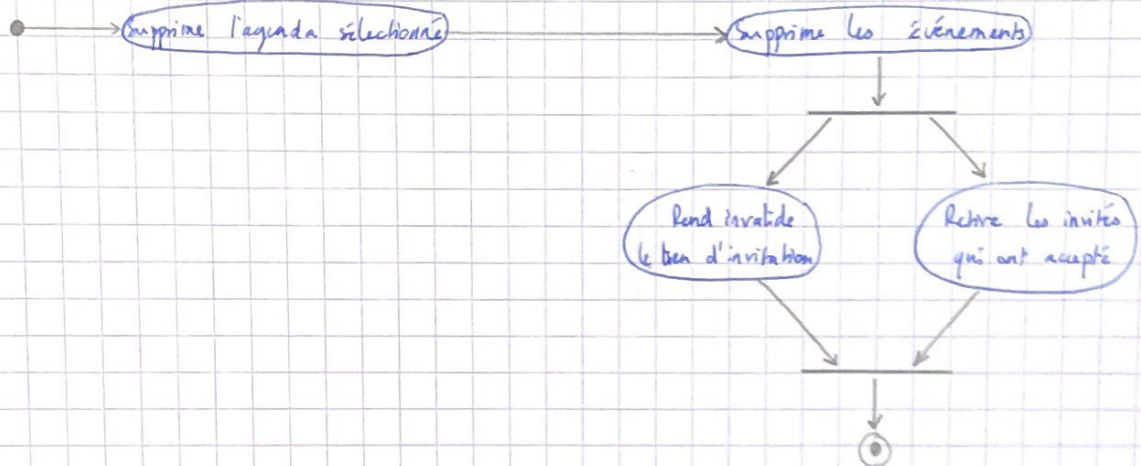 Supprime l'agenda sélectionné
Supprime les événements
Rend invalide
le lien d'invitation
Retire les invités
qui ont accepté